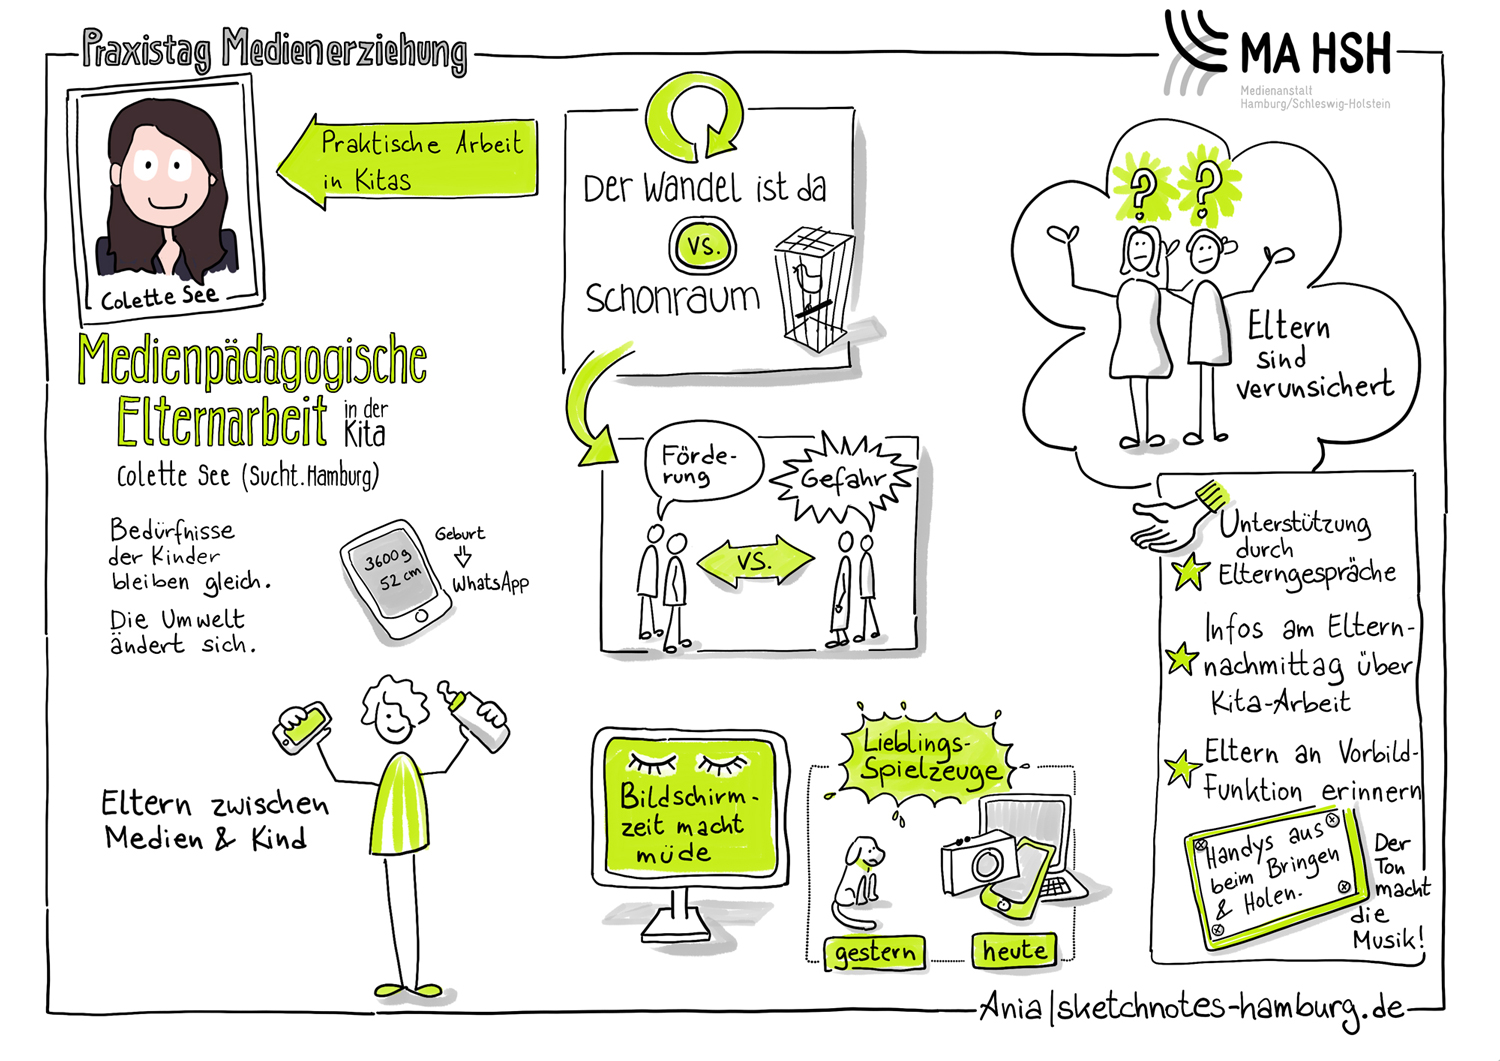 Praxistag Medienerziehung
MA HSH
Medienanstalt
Hamburg/Schleswig-Holstein
Colette See
Praktische Arbeit
in Kitas
Medienpädagogische
Elternarbeit in der
Kita
Colette See (Sucht.Hamburg)
Bedürfnisse
der Kinder
bleiben gleich.
Die Umwelt
ändert sich.
3600g
52 cm
Geburt
WhatsApp
Eltern zwischen
Medien & Kind
Der Wandel ist da
vs.
Schonraum
Förde-
rung
Gefahr
vs.
Bildschirm-
zeit macht
müde
Lieblings-
Spielzeuge
gestern
heute
?
?
Eltern
sind
verunsichert
Unterstützung
durch
Elterngespräche
Infos am Eltern-
nachmittag über
Kita-Arbeit
Eltern an Vorbild-
Funktion erinnern
Handys aus
beim Bringen
& Holen.
Der
Ton
macht
die
Musik!
Ania|sketchnotes-hamburg.de